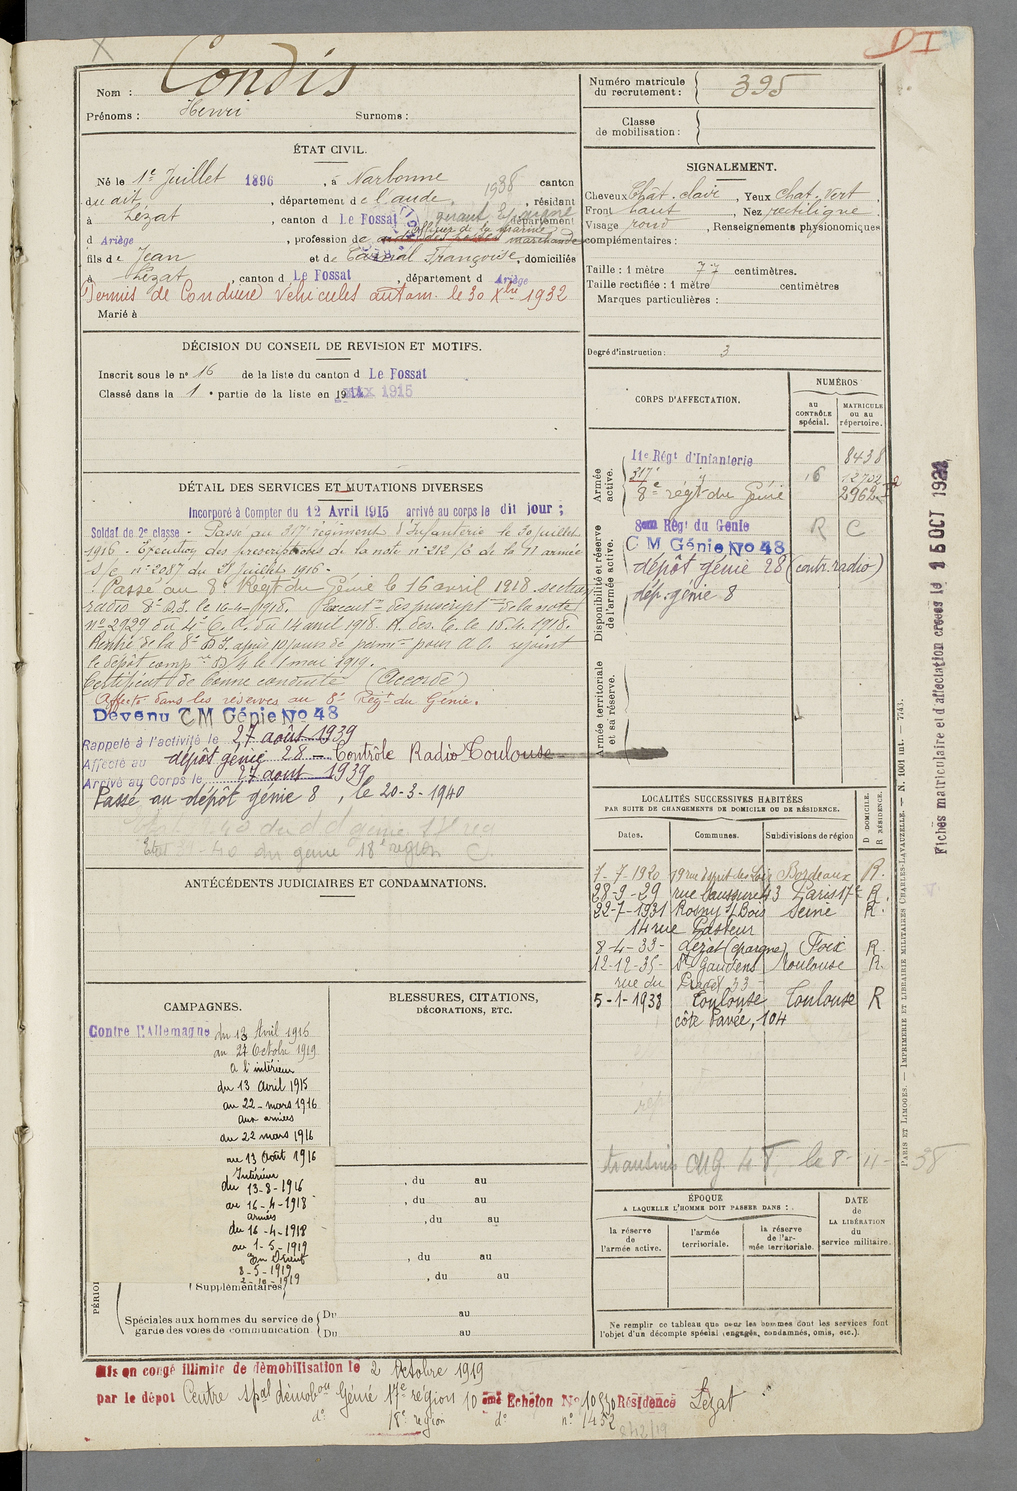 X
DI
Nom : Condis
Prénoms : Henri Surnoms :
Numéro matricule du recrutement : 395
Classe de mobilisation :
ÉTAT CIVIL.
Né le 1er Juillet 1896, à Narbonne canton
du dit, département de l'aude, résident
1938
à Lézat, canton d Le Fossat, département
d Ariège, profession de officier de la marine marchande
fils de Jean et de Françoise, domiciliés
à Lézat, canton d Le Fossat, département d Ariège
Permis de Conduire véhicules autom. le 30 Xbre 1932
Marié à
SIGNALEMENT.
Cheveux Chât. clair, Yeux Chat. Vert,
Front haut, Nez rectiligne
Visage rond, Renseignements physionomiques
complémentaires :
Taille : 1 mètre 77 centimètres.
Taille rectifiée : 1 mètre centimètres
Marques particulières :
Degré d'instruction : 3
DÉCISION DU CONSEIL DE REVISION ET MOTIFS.
Inscrit sous le n° 16 de la liste du canton d Le Fossat
Classé dans la 1e partie de la liste en 1915
DÉTAIL DES SERVICES ET MUTATIONS DIVERSES
Incorporé à Compter du 12 Avril 1915 arrivé au corps le dit jour ;
Soldat de 2e classe - Passé au 317e régiment d'Infanterie le 30 juillet
1916 - Exécution des prescriptions de la note n° 212 /6 de la VI armée
s/c n° 2087 du 21 juillet 1916 -
Passé au 8e Régt du Génie le 16 avril 1918 secteur
radio 8e D.I. le 16-4-1918. des prescript de la note
n° 2929 du 4e C.A. du 14 avril 1918. le 16.4.1918.
Rentré de la 8e D.I. après 10 jours de perm pour rejoint
le dépôt comp le 1 mai 1919.
Certificat de bonne conduite (Accordé)
Affecté dans les réserves au 8e Régt du Génie.
Devenu C M Génie No 48
Rappelé à l'activité le 27 août 1939
Affecté au dépôt génie 28 - Contrôle Radio Toulouse
Arrivé au Corps le 27 août 1939
Passé au dépôt génie 8, le 20-3-1940
du génie 18e région
CORPS D'AFFECTATION.
NUMÉROS
au CONTRÔLE spécial.
MATRICULE ou au répertoire.
Armée active.
11e Régt d'Infanterie 8438
317e 16 12732
8e régt du Génie 2962
Disponibilité et réserve de l'armée active.
8em Régt du Génie R C
C M Génie No 48
dépôt génie 28 (contr. radio)
dép. génie 8
Armée territoriale et sa réserve.
ANTÉCÉDENTS JUDICIAIRES ET CONDAMNATIONS.
LOCALITÉS SUCCESSIVES HABITÉES
PAR SUITE DE CHANGEMENTS DE DOMICILE OU DE RÉSIDENCE.
D DOMICILE. R RÉSIDENCE.
Dates. Communes. Subdivisions de région
7-7-1920 19 rue Bordeaux R.
28-9-29 rue Saussure 43 Paris 17e R.
22-7-1931 Rosny s/ Bois Seine R.
14 rue Pasteur
8-4-33 Lézat Foix R.
12-12-35 St Gaudens Toulouse R.
rue du Pradet 33
5-1-1938 Toulouse Toulouse R
côte Pavée, 104
transmis le 8-11-38
CAMPAGNES.
Contre l'Allemagne du 13 Avril 1915
au 27 Octobre 1919
à l'intérieur
du 13 avril 1915
au 22 - mars 1916
aux armées
du 22 mars 1916
au 13 Août 1916
Intérieur
du 13-8-1916
au 16-4-1918
armées
du 16-4-1918
au 1-5-1919
En Orient
8-5-1919
2-10-1919
BLESSURES, CITATIONS, DÉCORATIONS, ETC.
, du au
, du au
, du au
, du au
, du au
PÉRIO
(Supplémentaires)
Spéciales aux hommes du service de garde des voies de communication
Du au
Du au
ÉPOQUE
A LAQUELLE L'HOMME DOIT PASSER DANS :
la réserve de l'armée active.
l'armée territoriale.
la réserve de l'armée territoriale.
DATE de LA LIBÉRATION du service militaire.
Ne remplir ce tableau que pour les hommes dont les services font
l'objet d'un décompte spécial (engagés, condamnés, omis, etc.).
Mis en congé illimité de démobilisation le 2 Octobre 1919
par le dépôt Centre spal démobon Génie 17e région 10 ème Echelon No 10530 Résidence Lézat
do 18e région do n° 1452
8/12/19
PARIS ET LIMOGES. — IMPRIMERIE ET LIBRAIRIE MILITAIRES CHARLES-LAVAUZELLE. — N. 1001 int. — 7743.
Fiches matriculaire et d'affectation créées le 15 OCT 1928